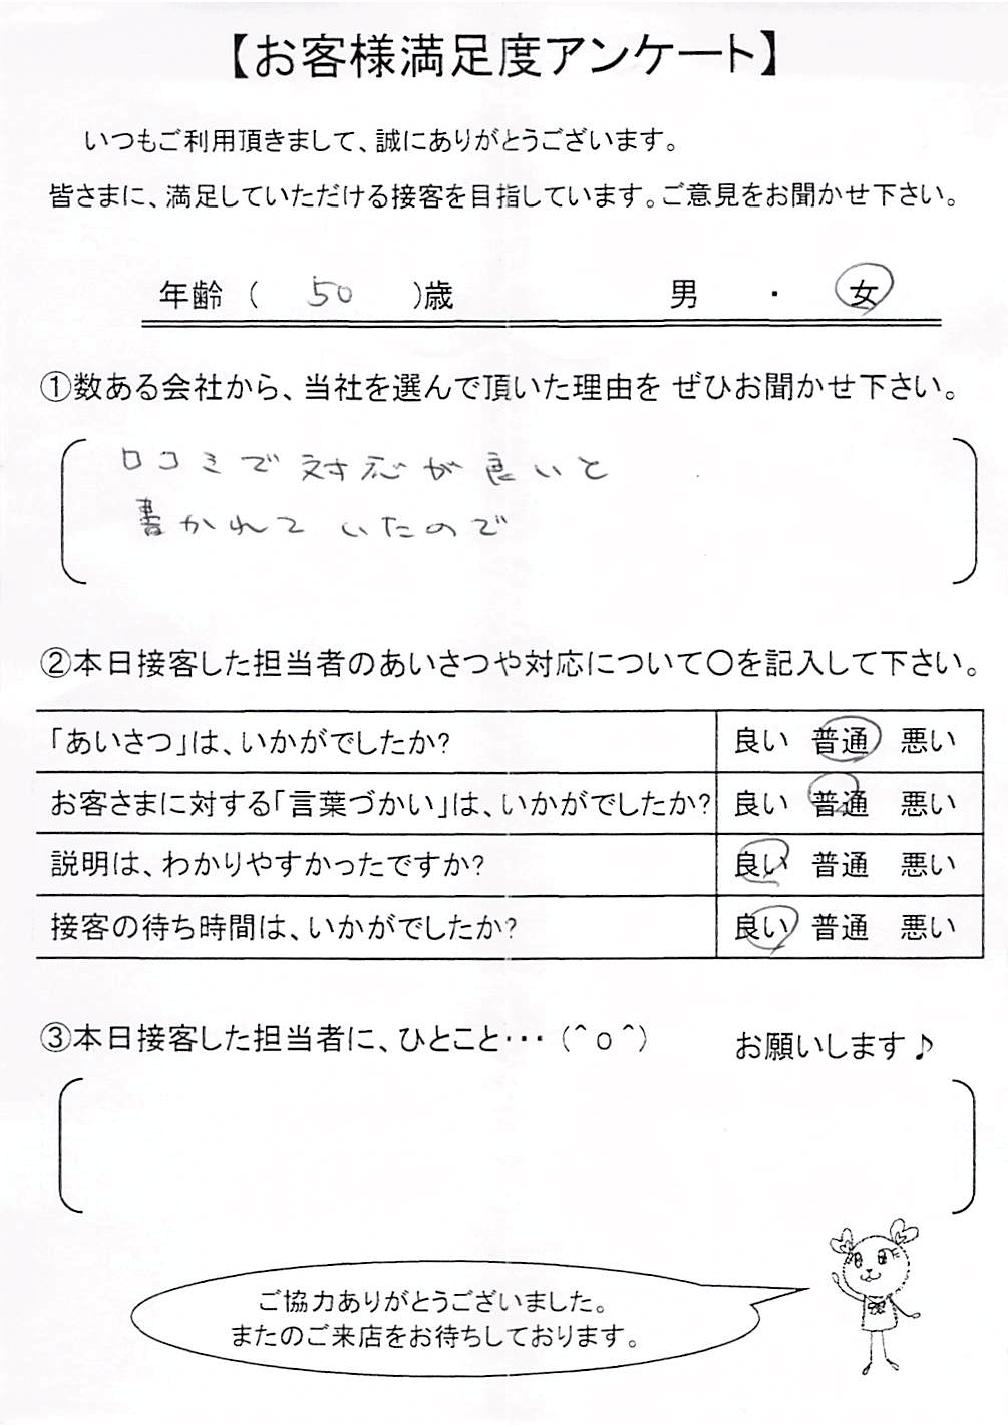 【お客様満足度アンケート】
いつもご利用頂きまして、誠にありがとうございます。
皆さまに、満足していただける接客を目指しています。ご意見をお聞かせ下さい。
年齢 ( 50 )歳 男 ・ 女
①数ある会社から、当社を選んで頂いた理由を ぜひお聞かせ下さい。
口コミで対応が良いと
書かれていたので
②本日接客した担当者のあいさつや対応について〇を記入して下さい。
「あいさつ」は、いかがでしたか? 良い 普通 悪い
お客さまに対する「言葉づかい」は、いかがでしたか? 良い 普通 悪い
説明は、わかりやすかったですか? 良い 普通 悪い
接客の待ち時間は、いかがでしたか? 良い 普通 悪い
③本日接客した担当者に、ひとこと・・・(^o^) お願いします♪
ご協力ありがとうございました。
またのご来店をお待ちしております。